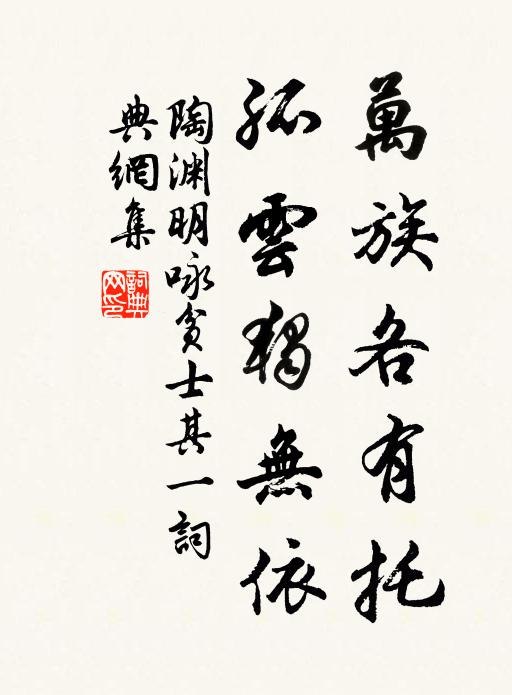 萬族各有托
孤雲獨無依
陶渊明咏貧士其一詞
典網集
詞典
网印